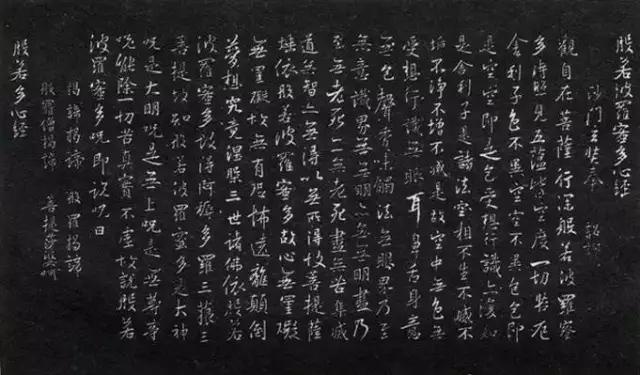 般若波羅蜜多心經
沙門玄奘奉 詔譯
觀自在菩薩行深般若波羅蜜
多時照見五蘊皆空度一切苦厄
舍利子色不異空空不異色色即
是空空即是色受想行識亦復如
是舍利子是諸法空相不生不滅不
垢不淨不增不減是故空中無色無
受想行識無眼耳鼻舌身意
無色聲香味觸法無眼界乃至
無意識界無無明亦無無明盡乃
至無老死亦無老死盡無苦集滅
道無智亦無得以無所得故菩提薩
埵依般若波羅蜜多故心無罣礙
無罣礙故無有恐怖遠離顛倒
夢想究竟涅槃三世諸佛依般若
波羅蜜多故得阿耨多羅三藐三
菩提故知般若波羅蜜多是大神
咒是大明咒是無上咒是無等等
咒能除一切苦真實不虛故說般若
波羅蜜多咒即說咒曰
揭諦揭諦 般羅揭諦
般羅僧揭諦 菩提莎婆訶
般若多心經